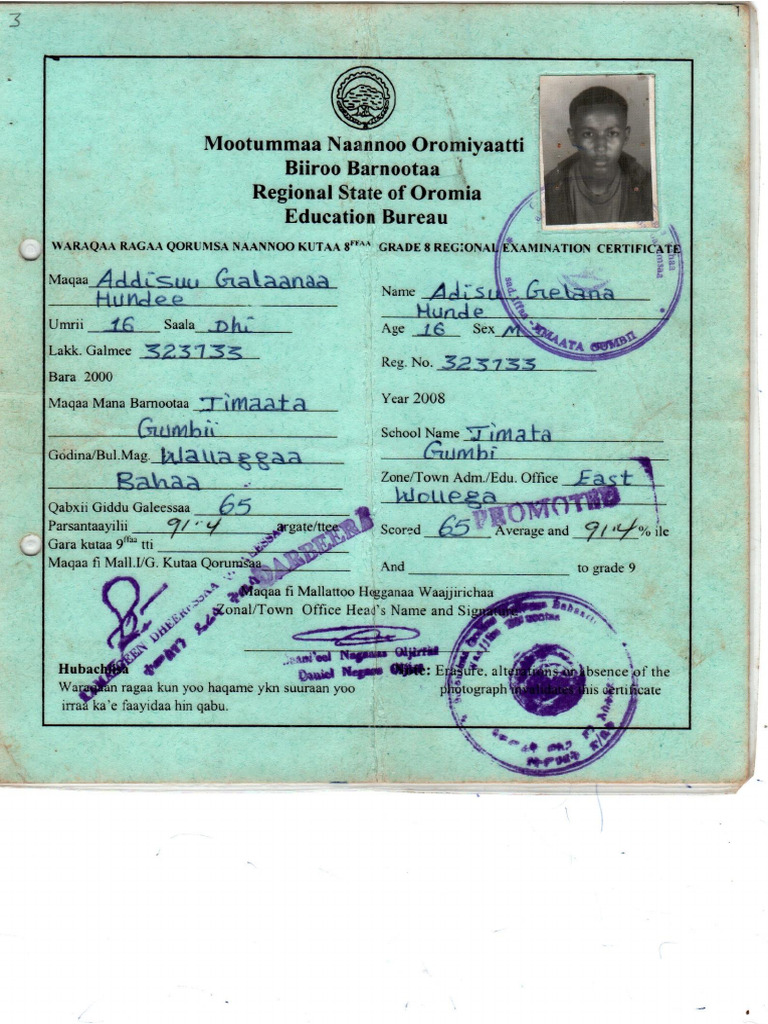 3
1
Mootummaa Naannoo Oromiyaatti
Biiroo Barnootaa
Regional State of Oromia
Education Bureau
WARAQAA RAGAA QORUMSA NAANNOO KUTAA 8FFAA GRADE 8 REGIONAL EXAMINATION CERTIFICATE
Maqaa Addisuu Galaanaa
Hundee
Umrii 16 Saala Dhi
Lakk. Galmee 323733
Bara 2000
Maqaa Mana Barnootaa Jimaata
Gumbii
Godina/Bul.Mag. Wallaggaa
Bahaa
Qabxii Giddu Galeessaa 65
Parsantaayilii 91.4 argate/ttee
Gara kutaa 9ffaa tti
Maqaa fi Mall.I/G. Kutaa Qorumsaa
Name Adisu Gelana
Hunde
Age 16 Sex M
Reg. No. 323733
Year 2008
School Name Jimata
Gumbi
Zone/Town Adm./Edu. Office East
Wollega
PROMOTED
Scored 65 Average and 91.4 % ile
And to grade 9
DARBEERA
JIMAATA GUMBII
Maqaa fi Mallattoo Hogganaa Waajjirichaa
Zonal/Town Office Head's Name and Signature
Daniel Negaso
Hubachiisa
Waraqaan ragaa kun yoo haqame ykn suuraan yoo
irraa ka'e faayidaa hin qabu.
Note: Erasure, alterations or absence of the
photograph invalidates this certificate